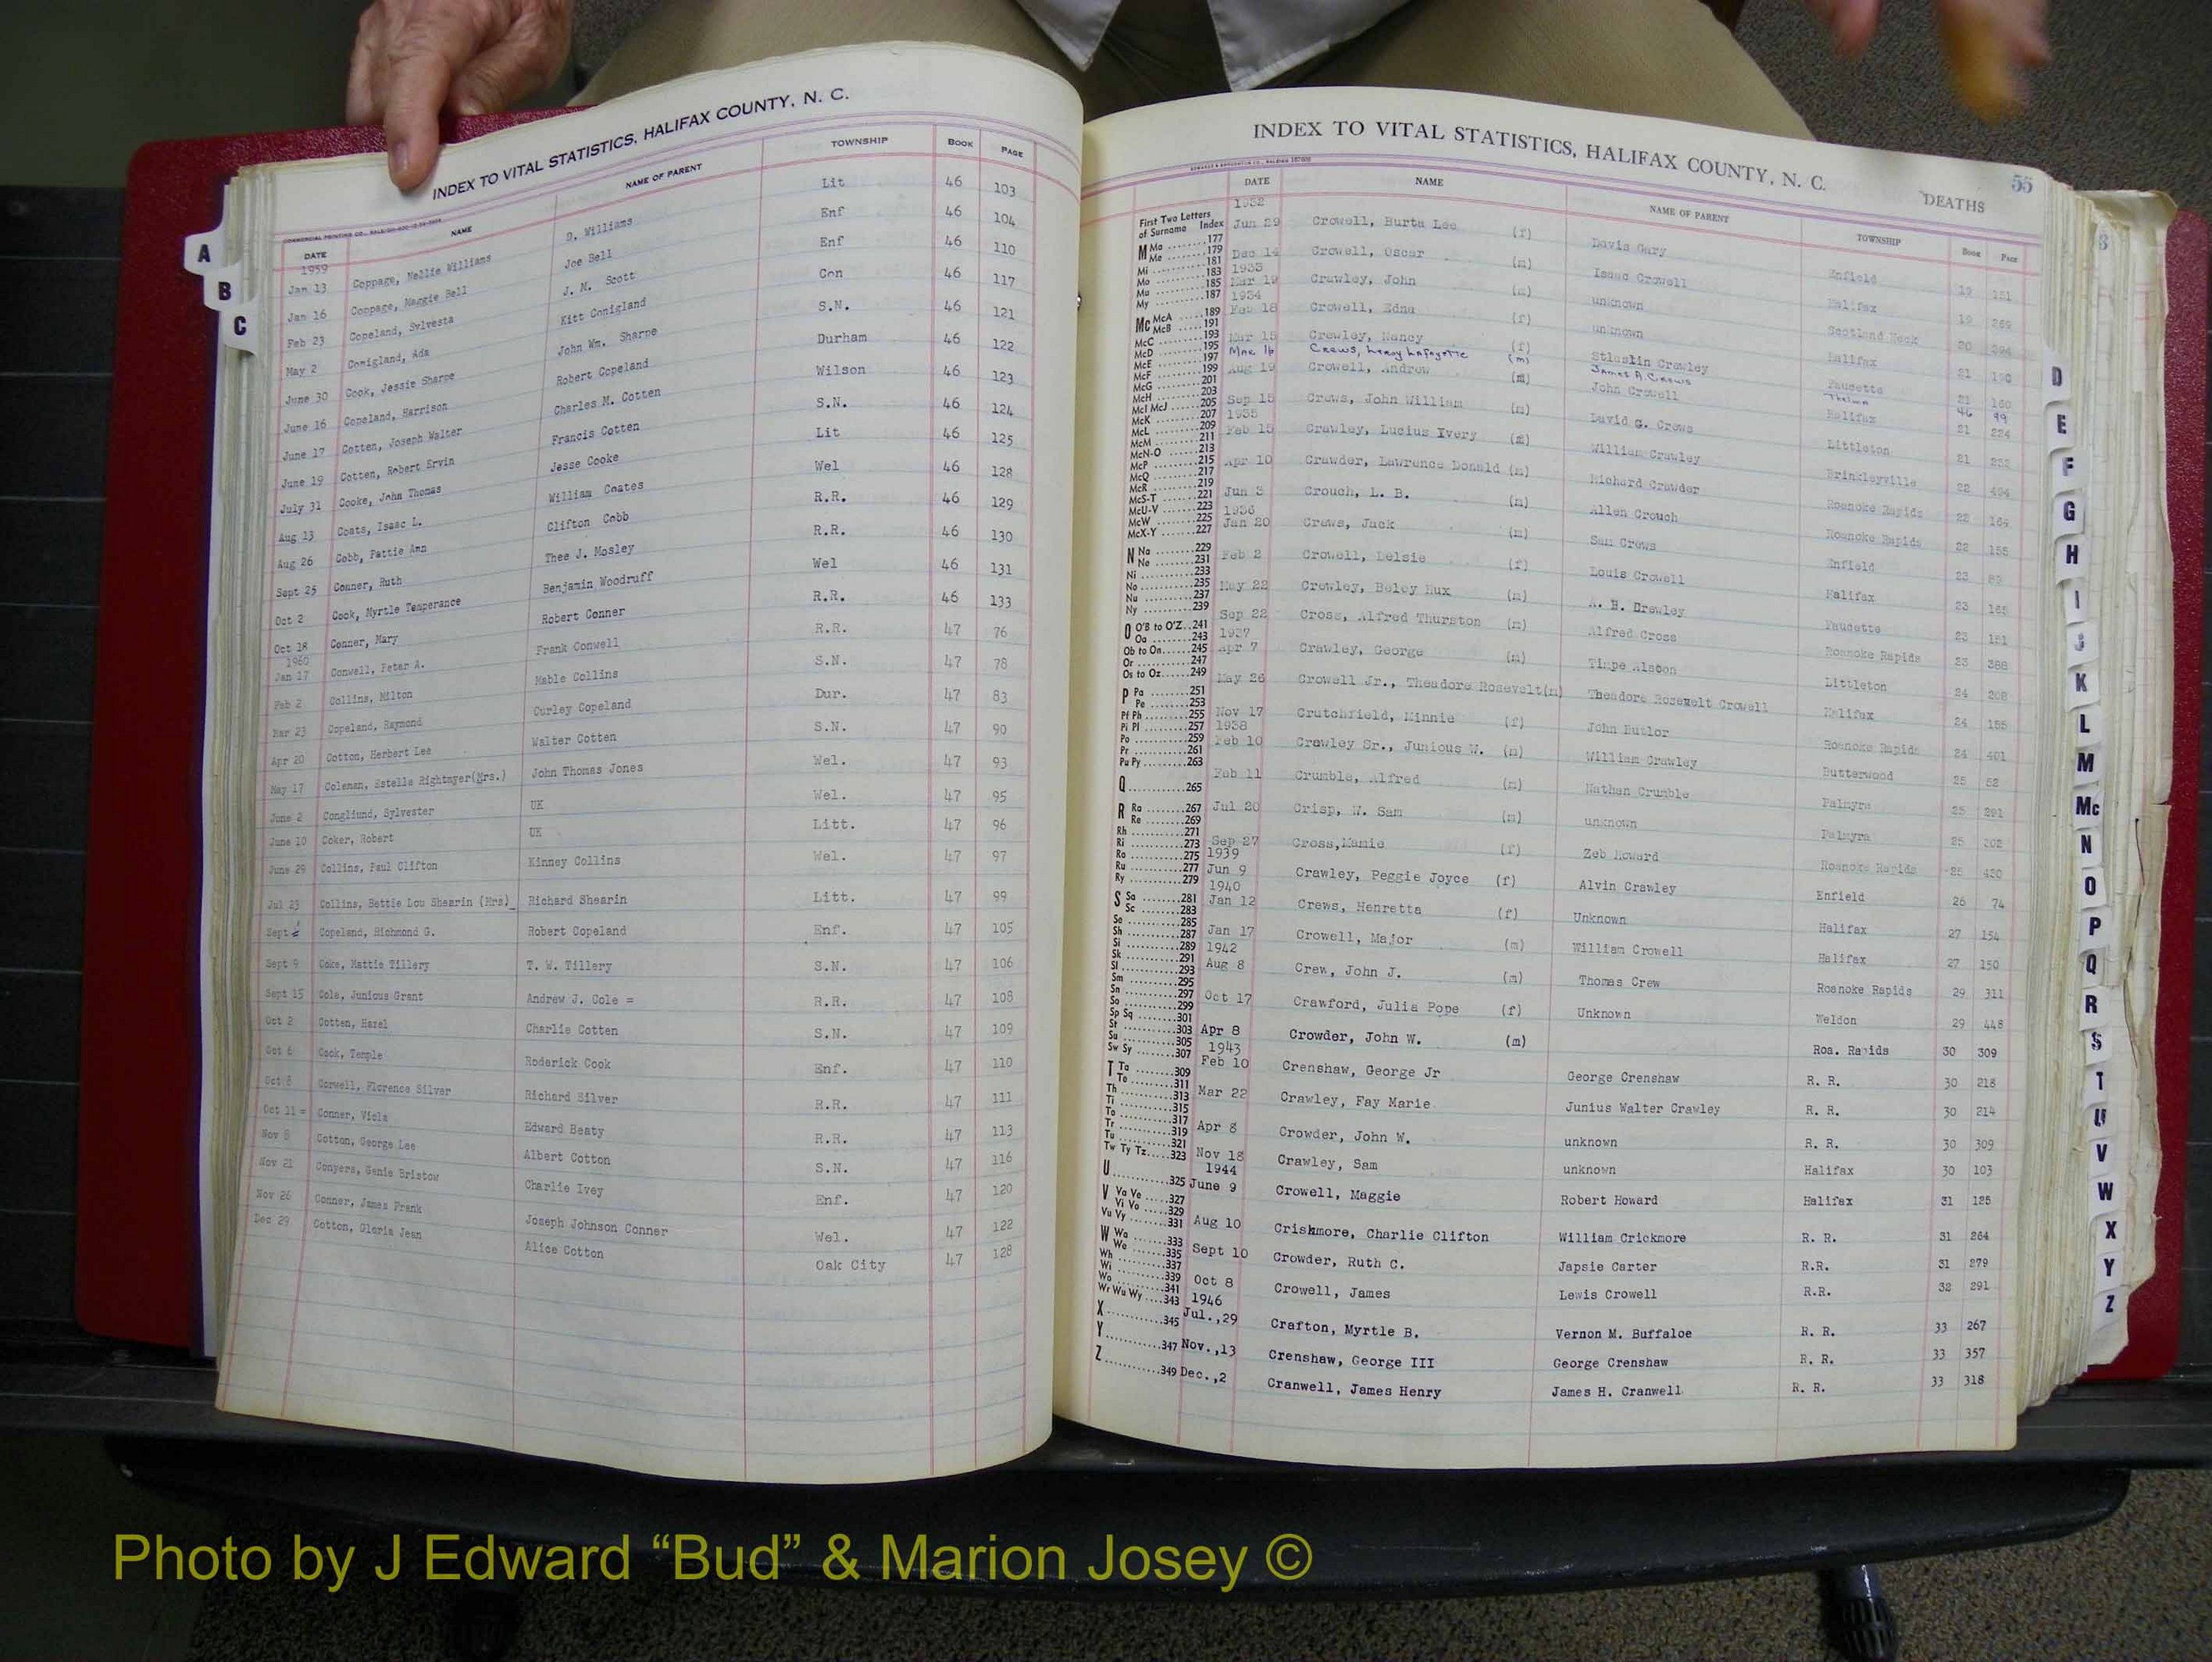 INDEX TO VITAL STATISTICS, HALIFAX COUNTY, N. C.
DATE NAME NAME OF PARENT TOWNSHIP BOOK PAGE
1959
Jan 13 Coppage, Nellie Williams D. Williams Lit 46 103
Jan 16 Coppage, Maggie Bell Joe Bell Enf 46 104
Feb 23 Copeland, Sylvesta J. M. Scott Enf 46 110
May 2 Conigland, Ada Kitt Conigland Con 46 117
June 30 Cook, Jessie Sharpe John Wm. Sharpe S.N. 46 121
June 16 Copeland, Harrison Robert Copeland Durham 46 122
June 17 Cotten, Joseph Walter Charles M. Cotten Wilson 46 123
June 19 Cotten, Robert Ervin Francis Cotten S.N. 46 124
July 31 Cooke, John Thomas Jesse Cooke Lit 46 125
Aug 13 Coats, Isaac L. William Coates Wel 46 128
Aug 26 Cobb, Pattie Ann Clifton Cobb R.R. 46 129
Sept 25 Conner, Ruth Thee J. Mosley R.R. 46 130
Oct 2 Cook, Myrtle Temperance Benjamin Woodruff Wel 46 131
Oct 18 Conner, Mary Robert Conner R.R. 46 133
1960
Jan 17 Conwell, Peter A. Frank Conwell R.R. 47 76
Feb 2 Collins, Milton Mable Collins S.N. 47 78
Mar 23 Copeland, Raymond Curley Copeland Dur. 47 83
Apr 20 Cotton, Herbert Lee Walter Cotten S.N. 47 90
May 17 Coleman, Estelle Rightmyer(Mrs.) John Thomas Jones Wel. 47 93
June 2 Congliund, Sylvester UK Wel. 47 95
June 10 Coker, Robert UK Litt. 47 96
June 29 Collins, Paul Clifton Kinney Collins Wel. 47 97
Jul 23 Collins, Bettie Lou Shearin (Mrs) Richard Shearin Litt. 47 99
Sept Copeland, Richmond G. Robert Copeland Enf. 47 105
Sept 9 Coke, Hattie Tillery T. W. Tillery S.N. 47 106
Sept 15 Cole, Junious Grant Andrew J. Cole = R.R. 47 108
Oct 2 Cotten, Hazel Charlie Cotten S.N. 47 109
Oct 6 Cook, Temple Roderick Cook Enf. 47 110
Oct 8 Conwell, Florence Silver Richard Silver R.R. 47 111
Oct 11 = Conner, Viola Edward Beaty R.R. 47 113
Nov 8 Cotton, George Lee Albert Cotton S.N. 47 116
Nov 21 Conyers, Genie Bristow Charlie Ivey Enf. 47 120
Nov 26 Conner, James Frank Joseph Johnson Conner Wel. 47 122
Dec 29 Cotton, Gloria Jean Alice Cotton Oak City 47 128
A
B
C
INDEX TO VITAL STATISTICS, HALIFAX COUNTY, N. C.
DEATHS 55
DATE NAME NAME OF PARENT TOWNSHIP Book Page
1932
Jun 29 Crowell, Burta Lee (f) Davis Gary Enfield 19 151
Dec 14 Crowell, Oscar (m) Isaac Crowell Halifax 19 269
1933
Mar 19 Crawley, John (m) unknown Scotland Neck 20 394
1934
Feb 18 Crowell, Edna (f) unknown Halifax 21 190
Mar 15 Crawley, Nancy (f) Crawley Faucette 21 160
Mar 16 Crews, Leroy Lafayette (m) James A. Crews Thelma 46 99
Aug 19 Crowell, Andrew (m) John Crowell Halifax 21 224
Sep 15 Crews, John William (m) David G. Crews Littleton 21
1935
Feb 15 Crawley, Lucius Ivery (m) William Crawley Brinkleyville 22 494
Apr 10 Crawder, Lawrence Donald (m) Richard Crawder Roanoke Rapids 22 164
Jun 3 Crouch, L. B. (m) Allen Crouch Roanoke Rapids 22 155
1936
Jan 20 Crews, Jack (m) Sam Crews Enfield 23
Feb 2 Crowell, Delsie (f) Louis Crowell Halifax 23 165
May 22 Crawley, Boley Hux (m) A. H. Drawley Faucette 23 151
Sep 22 Cross, Alfred Thurston (m) Alfred Cross Roanoke Rapids 23 388
1937
Apr 7 Crawley, George (m) Timpe Alston Littleton 24 208
May 26 Crowell Jr., Theadore Rosevelt(m) Theadore Rosewelt Crowell Halifax 24 155
Nov 17 Crutchfield, Minnie (f) John Butlor Roanoke Rapids 24 401
1938
Feb 10 Crawley Sr., Junious W. (m) William Crawley Butterwood 25 52
Feb 11 Crumble, Alfred (m) Nathan Crumble Palmyra 25 291
Jul 20 Crisp, W. Sam (m) unknown Palmyra 25 302
Sep 27 Cross,Mamie (f) Zeb Howard Roanoke Rapids 25 420
1939
Jun 9 Crawley, Peggie Joyce (f) Alvin Crawley Enfield 26 74
1940
Jan 12 Crews, Henretta (f) Unknown Halifax 27 154
Jan 17 Crowell, Major (m) William Crowell Halifax 27 150
1942
Aug 8 Crew, John J. (m) Thomas Crew Roanoke Rapids 29 311
Oct 17 Crawford, Julia Pope (f) Unknown Weldon 29 448
Apr 8 Crowder, John W. (m) Roa. Rapids 30 309
1943
Feb 10 Crenshaw, George Jr George Crenshaw R. R. 30 218
Mar 22 Crawley, Fay Marie Junius Walter Crawley R. R. 30 214
Apr 8 Crowder, John W. unknown R. R. 30 309
Nov 18 Crawley, Sam unknown Halifax 30 103
1944
June 9 Crowell, Maggie Robert Howard Halifax 31 125
Aug 10 Crickmore, Charlie Clifton William Crickmore R. R. 31 264
Sept 10 Crowder, Ruth C. Japsie Carter R.R. 31 279
Oct 8 Crowell, James Lewis Crowell R.R. 32 291
1946
Jul.,29 Crafton, Myrtle B. Vernon M. Buffaloe R. R. 33 267
Nov.,13 Crenshaw, George III George Crenshaw R. R. 33 357
Dec.,2 Cranwell, James Henry James H. Cranwell R. R. 33 318
First Two Letters
of Surname Index
M Ma ........177
Me ........179
Mi ..........181
Mo .........183
Mu .........185
My .........187
Mc McA .....189
McB .....191
McC .........193
McD .........195
McE .........197
McF .........199
McG .........201
McH .........203
McI McJ .....205
McK .........207
McL .........209
McM .........211
McN-O ......213
McP .........215
McQ .........217
McR .........219
McS-T .......221
McU-V .......223
McW .........225
McX-Y .......227
N Na .........229
Ne .........231
Ni ..........233
No ..........235
Nu ..........237
Ny ..........239
O O'B to O'Z..241
Oa ........243
Ob to On......245
Or ..........247
Os to Oz......249
P Pa .........251
Pe .........253
Pf Ph .........255
Pi Pl .........257
Po ..........259
Pr ..........261
Pu Py .........263
Q ...........265
R Ra ........267
Re ........269
Rh ..........271
Ri ..........273
Ro ..........275
Ru ..........277
Ry ..........279
S Sa ........281
Sc ........283
Se ..........285
Sh ..........287
Si ..........289
Sk ..........291
Sl ..........293
Sm ..........295
Sn ..........297
So ..........299
Sp Sq ........301
St ..........303
Su ..........305
Sw Sy ........307
T Ta ........309
Te ........311
Th ..........313
Ti ..........315
To ..........317
Tr ..........319
Tu ..........321
Tw Ty Tz.....323
U ...........325
V Va Ve .....327
Vi Vo .....329
Vu Vy ........331
W Wa .......333
We .......335
Wh ..........337
Wi ..........339
Wo ..........341
Wr Wu Wy ....343
X ...........345
Y ...........347
Z ...........349
D
E
F
G
H
I
J
K
L
M
Mc
N
O
P
Q
R
S
T
U
V
W
X
Y
Z
Photo by J Edward “Bud” & Marion Josey ©